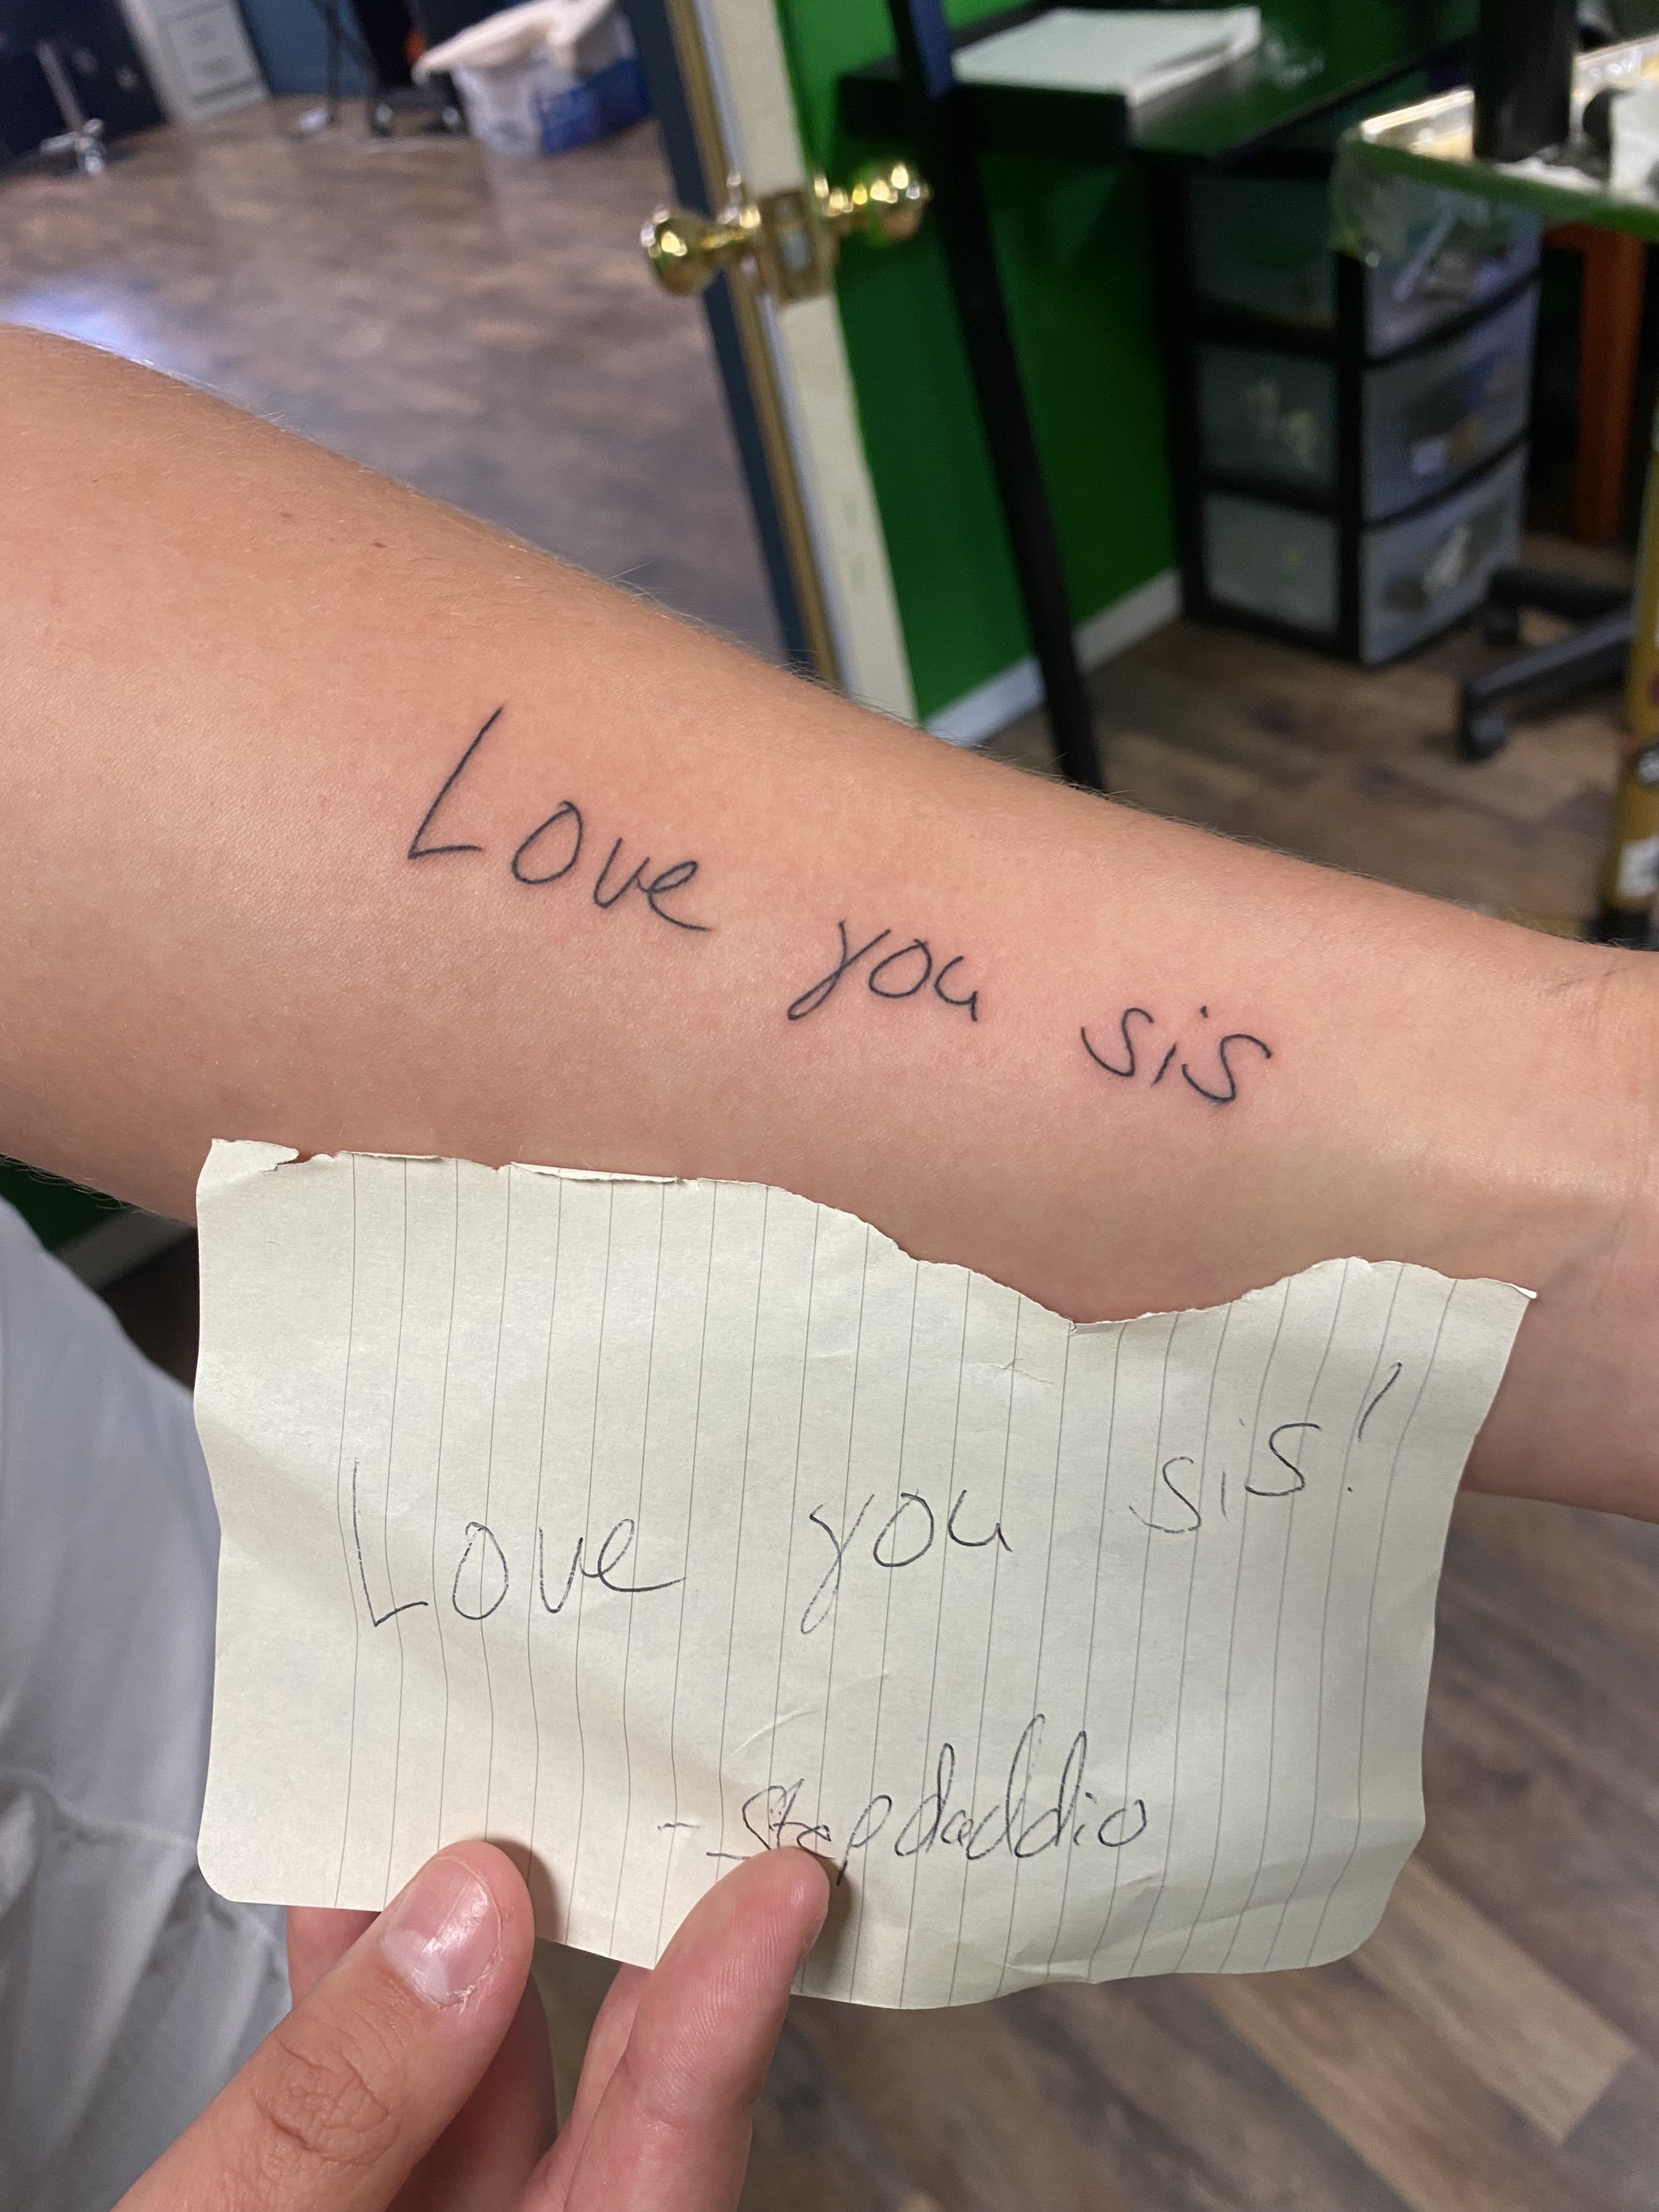 Love you sis
Love you sis!
- Stepdaddio